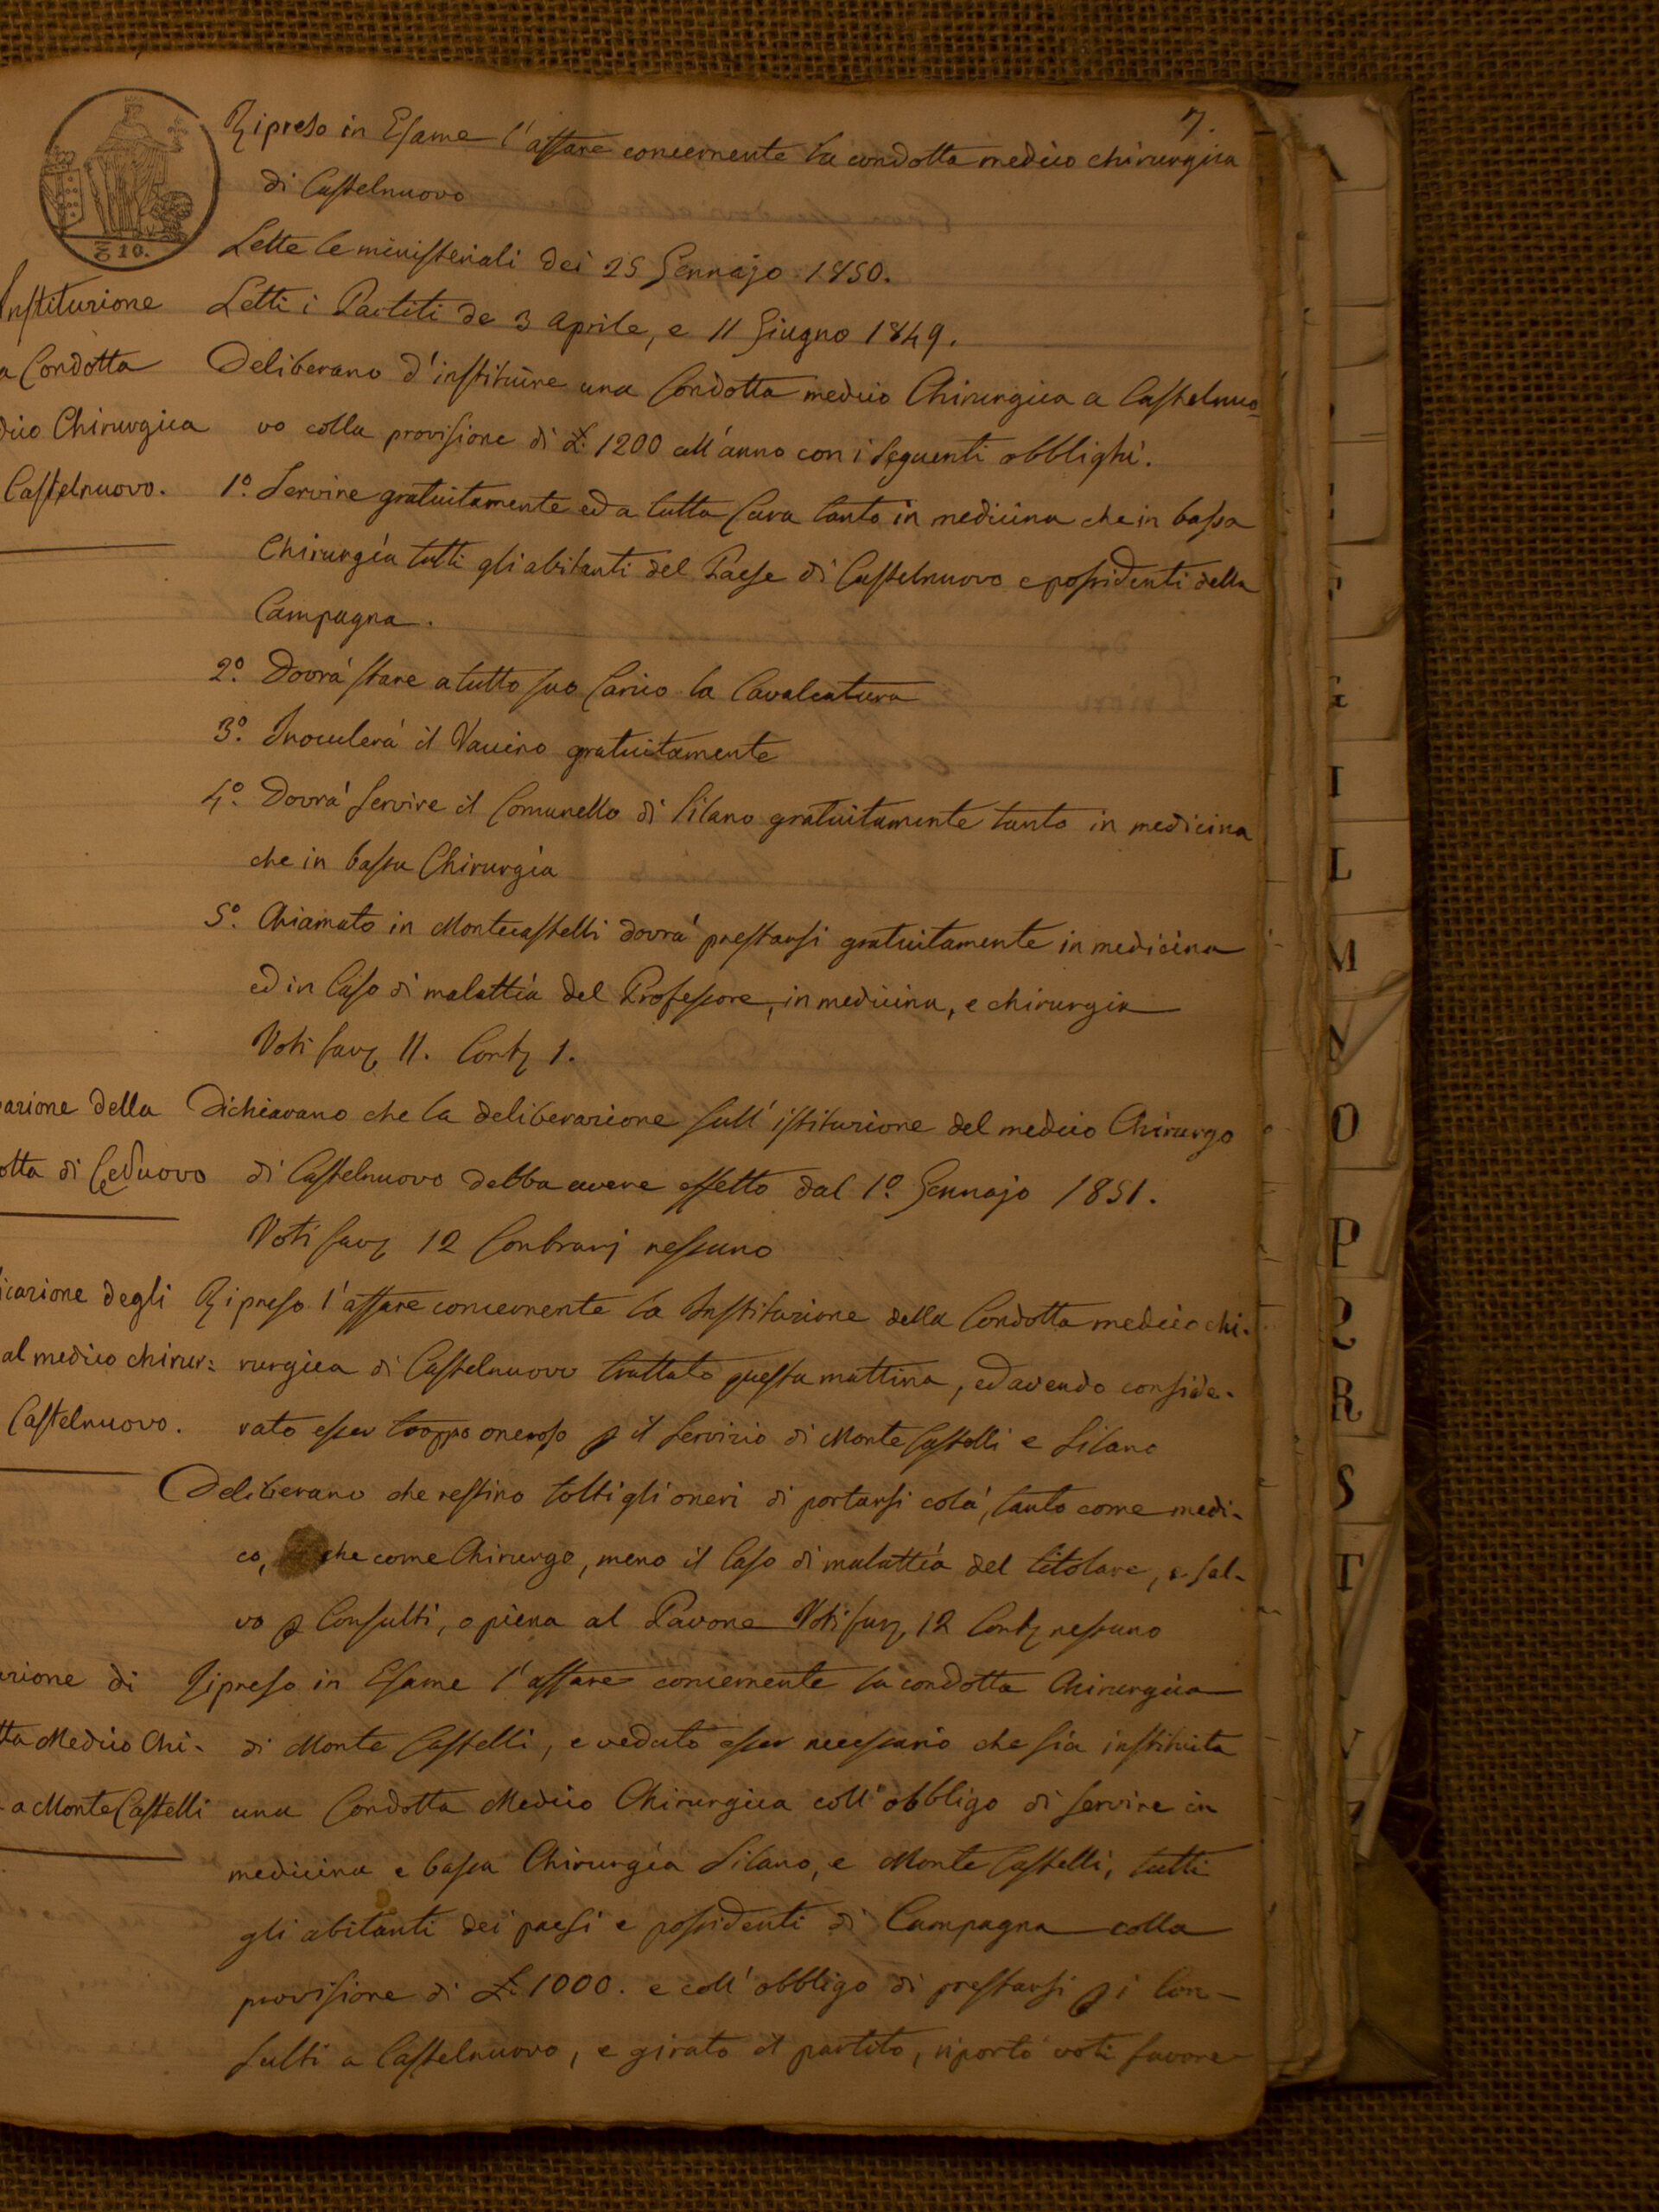 7.
Ripreso in Esame l'affare concernente la condotta medico chirurgica
di Castelnuovo
10.
Lette le ministeriali dei 25 Gennajo 1850.
Institurione
Letti i Partiti de 3 Aprile, e 11 Giugno 1849.
a Condotta
Deliberano d'instituire una Condotta medico Chirurgica a Castelnuo
dico Chirurgica
vo colla provisione di £. 1200 all'anno con i seguenti obblighi.
Castelnuovo.
1º. Servire gratuitamente ed a tutta Cura tanto in medicina che in bassa
Chirurgía tutti gli abitanti del Paese di Castelnuovo e possidenti della
Campagna.
2º. Dovrà stare a tutto suo Carico la Cavalcatura
3º. Inoculerà il Vaccino gratuitamente
4º. Dovrà servire il Comunello di Silano gratuitamente tanto in medicina
che in bassa Chirurgía
5º. Chiamato in Montecastelli dovrà prestarsi gratuitamente in medicina
ed in Caso di malattía del Professore, in medicina, e chirurgia
Voti fav. 11. Cont. 1.
arione della
Dichiarano che la deliberazione sull'istituzione del medico Chirurgo
otta di C.elnuovo
di Castelnuovo debba avere effetto dal 1º. Gennajo 1851.
Voti fav. 12 Contrarj nessuno
icazione degli
Ripreso l'affare concernente la Institurione della Condotta medico chi-
al medico chirur:
rurgica di Castelnuovo trattato questa mattina, ed avendo conside-
Castelnuovo.
rato esser troppo oneroso p il servizio di Monte Castelli e Silano
Deliberano che restino tolti gli oneri di portarsi colà, tanto come medi-
co, che come Chirurgo, meno il Caso di malattía del titolare, e sal-
vo p Consulti, o piena al Pavone Voti fav. 12 Cont. nessuno
zione di
Ripreso in Esame l'affare concernente la condotta Chirurgica
tta Medico Chi-
di Monte Castelli, e veduto esser necessario che sia instituita
a Monte Castelli
una Condotta Medico Chirurgica coll'obbligo di servire in
medicina e bassa Chirurgía Silano, e Monte Castelli, tutti
gli abitanti dei paesi e possidenti di Campagna colla
provisione di £. 1000. e coll'obbligo di prestarsi p i Con-
sulti a Castelnuovo, e girato il partito, riportò voti favore-
G
I
L
M
N
O
P
Q
R
S
T
V
Z